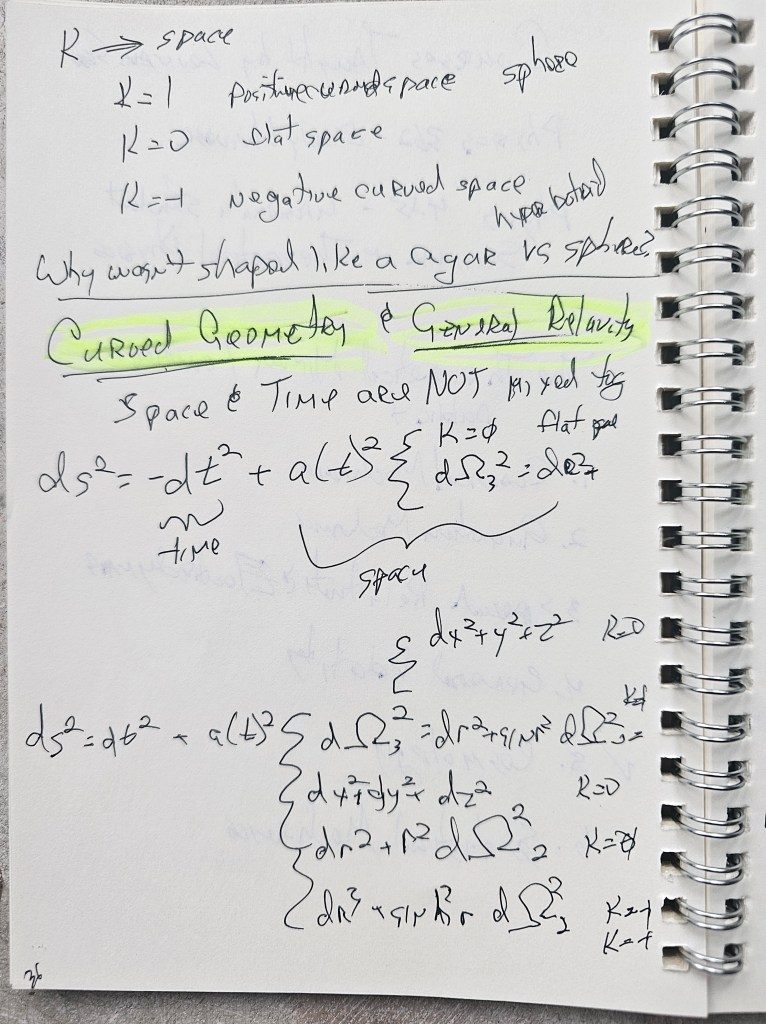 K ⇒ space
K=1 positive curved space sphere
K=0 flat space
K=-1 negative curved space
hyperboloid
Why wasn't shaped like a cigar vs sphere?
Curved Geometry & General Relavity
Space & Time are NOT mixed tog
ds² = -dt² + a(t)² { K=0 flat space
dΩ₃² = dr²+
time
space
{ dx²+y²+z² K=0
K=1
ds² = dt² + a(t)² { dΩ₃² = dr²+sin r² dΩ₂² =
dx²+dy²+dz² K=0
dr² + r² dΩ₂² K=0
dr² + sinh²r dΩ₂² K=-1
K=-1